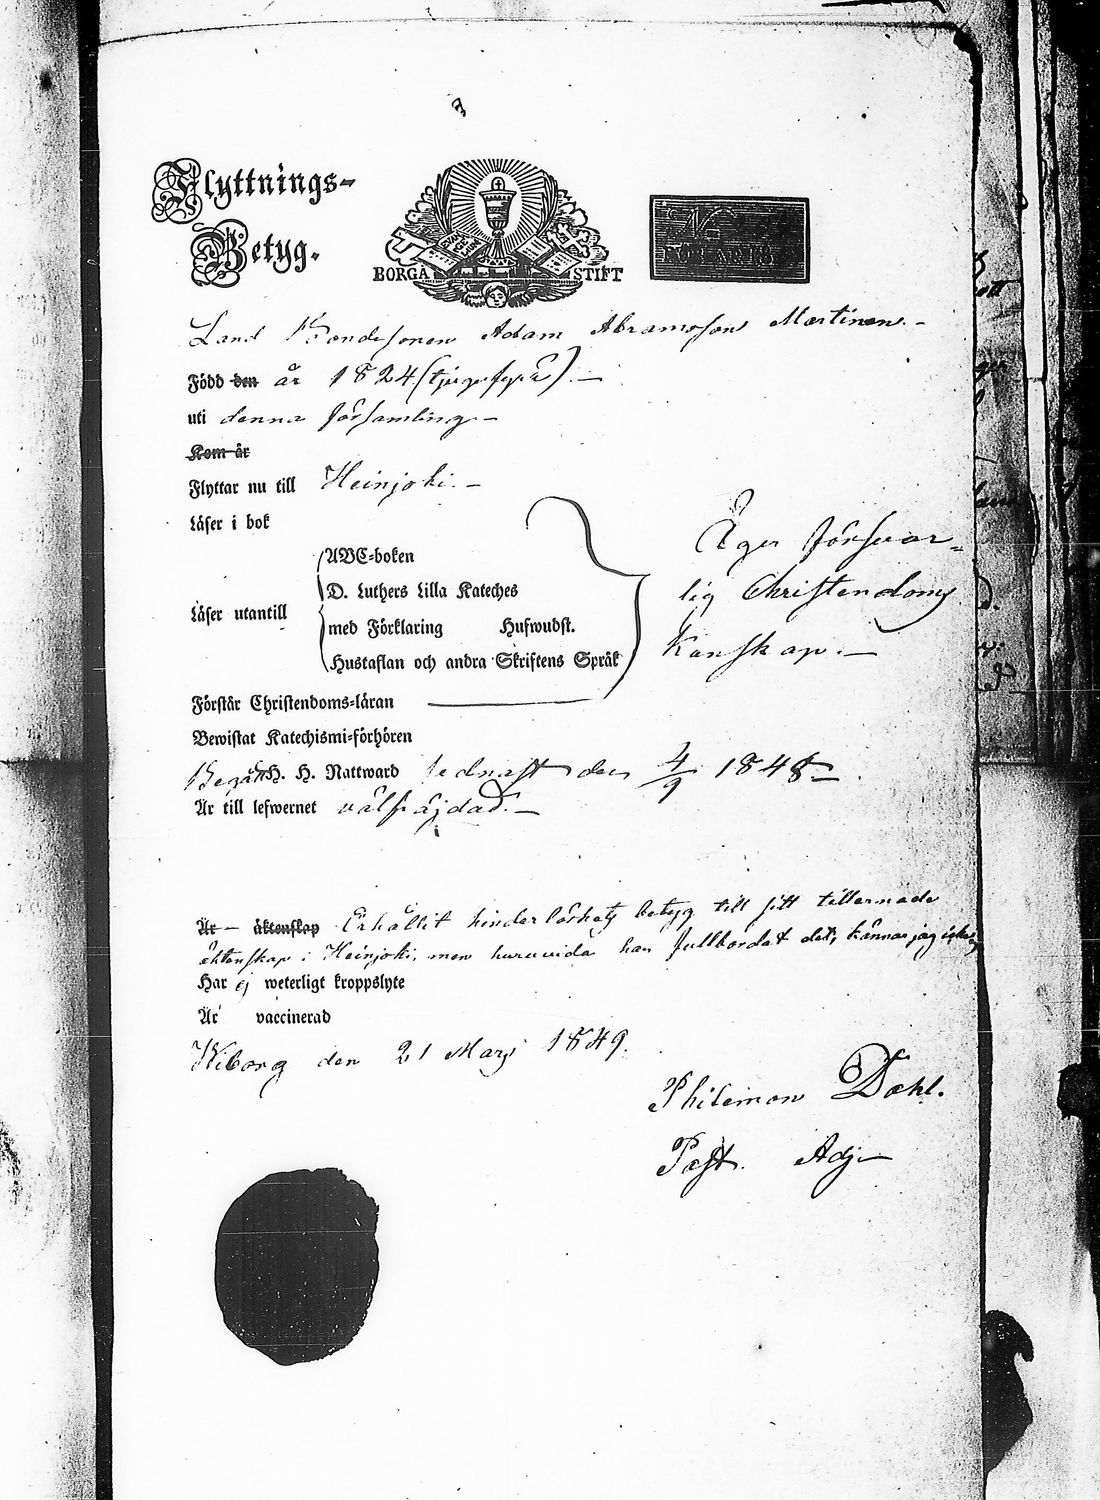 Flyttnings-
Betyg.
BORGÅ STIFT
Land Bondesonen Adam Abramsson Martinen. -
Född den år 1824 (tjugufyra). -
uti denna församling -
Kom år
Flyttar nu till Heinjoki. -
Läser i bok
Äger försvar-
ABC-boken
D. Luthers Lilla Kateches
lig Christendoms
Läser utantill
med Förklaring Hufwudst.
kunskap. -
Hustaflan och andra Skriftens Språk
Förstår Christendoms-läran
Bewistat Katechismi-förhören
Begått H. H. Nattward sednast den 4/9 1848 -
Är till lefwernet välfräjdad. -
Är - äktenskap Erhållit hinderlöshets betyg till sitt tillernade
äktenskap i Heinjoki, men huruvida han fullbordat det, känner jag icke
Har ej weterligt kroppslyte
Är vaccinerad
Wiborg den 21 Mars 1849.
Philemon Dahl.
Past. Adj.